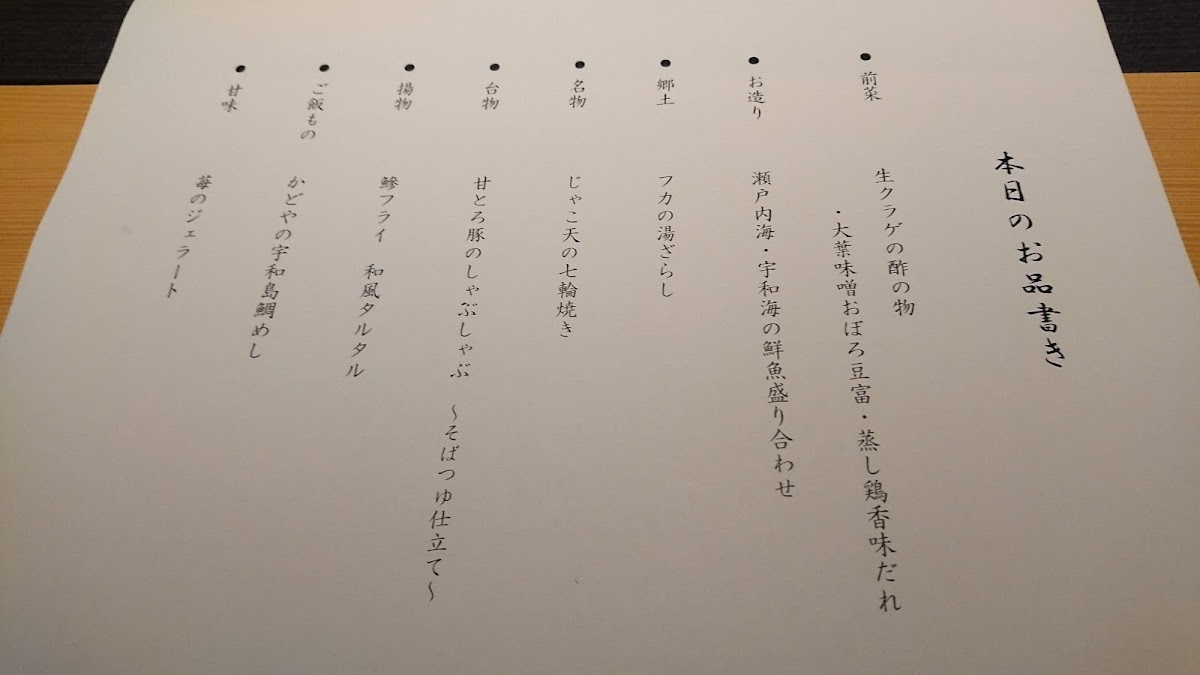 本日のお品書き
●前菜
生クラゲの酢の物
・大葉味噌おぼろ豆富・蒸し鶏香味だれ
●お造り
瀬戸内海・宇和海の鮮魚盛り合わせ
●郷土
フカの湯ざらし
●名物
じゃこ天の七輪焼き
●台物
甘とろ豚のしゃぶしゃぶ ～そばつゆ仕立て～
●揚物
鯵フライ 和風タルタル
●ご飯もの
かどやの宇和島鯛めし
●甘味
苺のジェラート